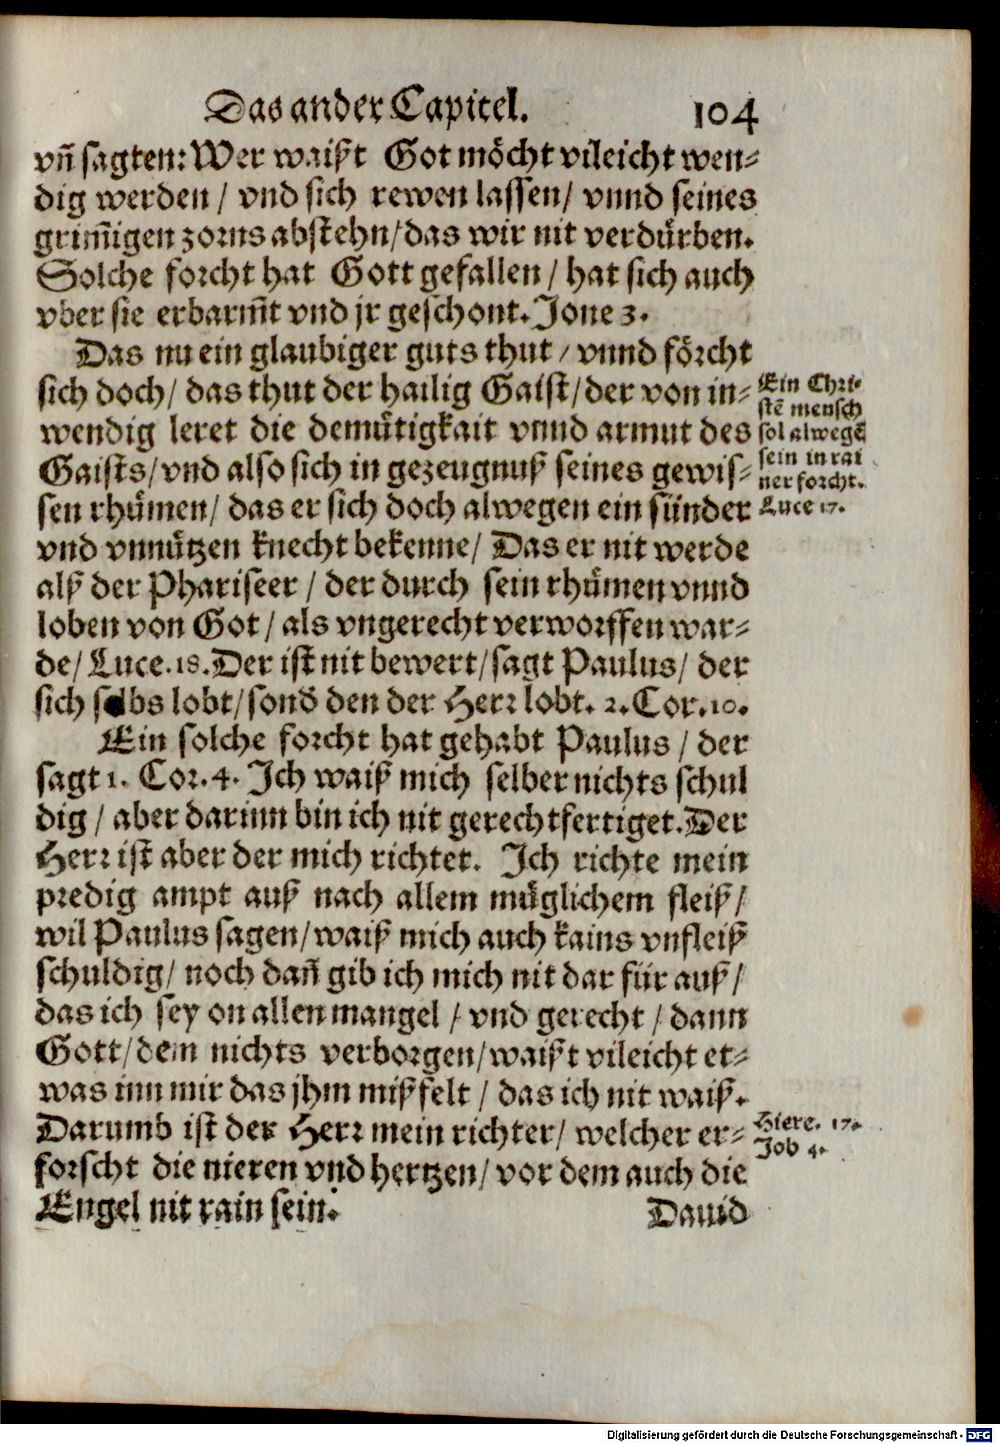 Das ander Capitel. 104
vñ sagten: Wer waißt Got möcht vileicht wen⸗
dig werden / vnd sich rewen lassen / vnnd seines
grim̃igen zorns abstehn / das wir nit verdürben.
Solche forcht hat Gott gefallen / hat sich auch
vber sie erbarm̃t vnd jr geschont. Jone 3.
Das nu ein glaubiger guts thut / vnnd förcht
sich doch / das thut der hailig Gaist / der von in⸗
wendig leret die demütigkait vnnd armut des
Gaists / vnd also sich in gezeugnuß seines gewis⸗
sen rhümen / das er sich doch alwegen ein sünder
vnd vnnützen knecht bekenne / Das er nit werde
alß der Phariseer / der durch sein rhümen vnnd
loben von Got / als vngerecht verworffen war⸗
de / Luce. 18. Der ist nit bewert / sagt Paulus / der
sich selbs lobt / sond̃ den der Herr lobt. 2. Cor. 10.
Ein Chri⸗
stẽ mensch
sol alwegẽ
sein in rai
ner forcht.
Luce 17.
Ein solche forcht hat gehabt Paulus / der
sagt 1. Cor. 4. Ich waiß mich selber nichts schul
dig / aber darinn bin ich nit gerechtfertiget. Der
Herr ist aber der mich richtet. Ich richte mein
predig ampt auß nach allem müglichem fleiß /
wil Paulus sagen / waiß mich auch kains vnfleiß
schuldig / noch dañ gib ich mich nit dar für auß /
das ich sey on allen mangel / vnd gerecht / dann
Gott / dem nichts verborgen / waißt vileicht et⸗
was inn mir das jhm mißfelt / das ich nit waiß.
Darumb ist der Herr mein richter / welcher er⸗
forscht die nieren vnd hertzen / vor dem auch die
Engel nit rain sein.
Hiere. 17.
Job 4.
Dauid
Digitalisierung gefördert durch die Deutsche Forschungsgemeinschaft - DFG